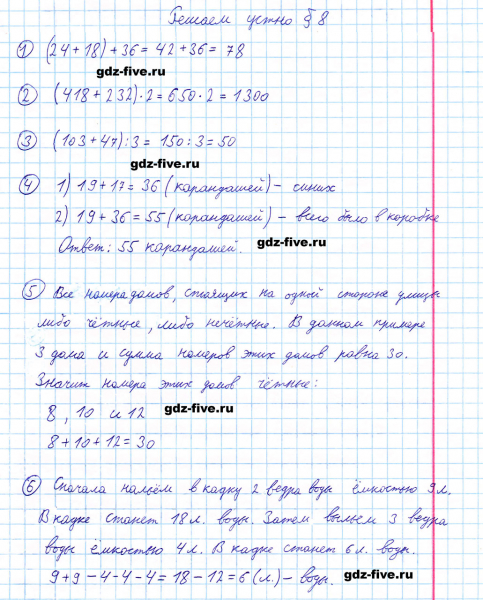 Решаем устно § 8
① (24 + 18) + 36 = 42 + 36 = 78
gdz-five.ru
② (418 + 232) · 2 = 650 · 2 = 1300
③ (103 + 47) : 3 = 150 : 3 = 50
gdz-five.ru
④ 1) 19 + 17 = 36 (карандашей) – синих
2) 19 + 36 = 55 (карандашей) – всего было в коробке
Ответ: 55 карандашей.
gdz-five.ru
⑤ Все номера домов, стоящих на одной стороне улицы
либо чётные, либо нечётные. В данном примере
3 дома и сумма номеров этих домов равна 30.
Значит номера этих домов чётные:
8, 10 и 12
gdz-five.ru
8 + 10 + 12 = 30
⑥ Сначала нальём в кадку 2 ведра воды ёмкостью 9 л.
В кадке станет 18 л. воды. Затем выльем 3 ведра
воды ёмкостью 4 л. В кадке станет 6 л. воды.
9 + 9 – 4 – 4 – 4 = 18 – 12 = 6 (л) – воды.
gdz-five.ru